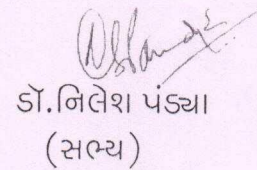 ડૉ.નિલેશ પંડ્યા
(સભ્ય)